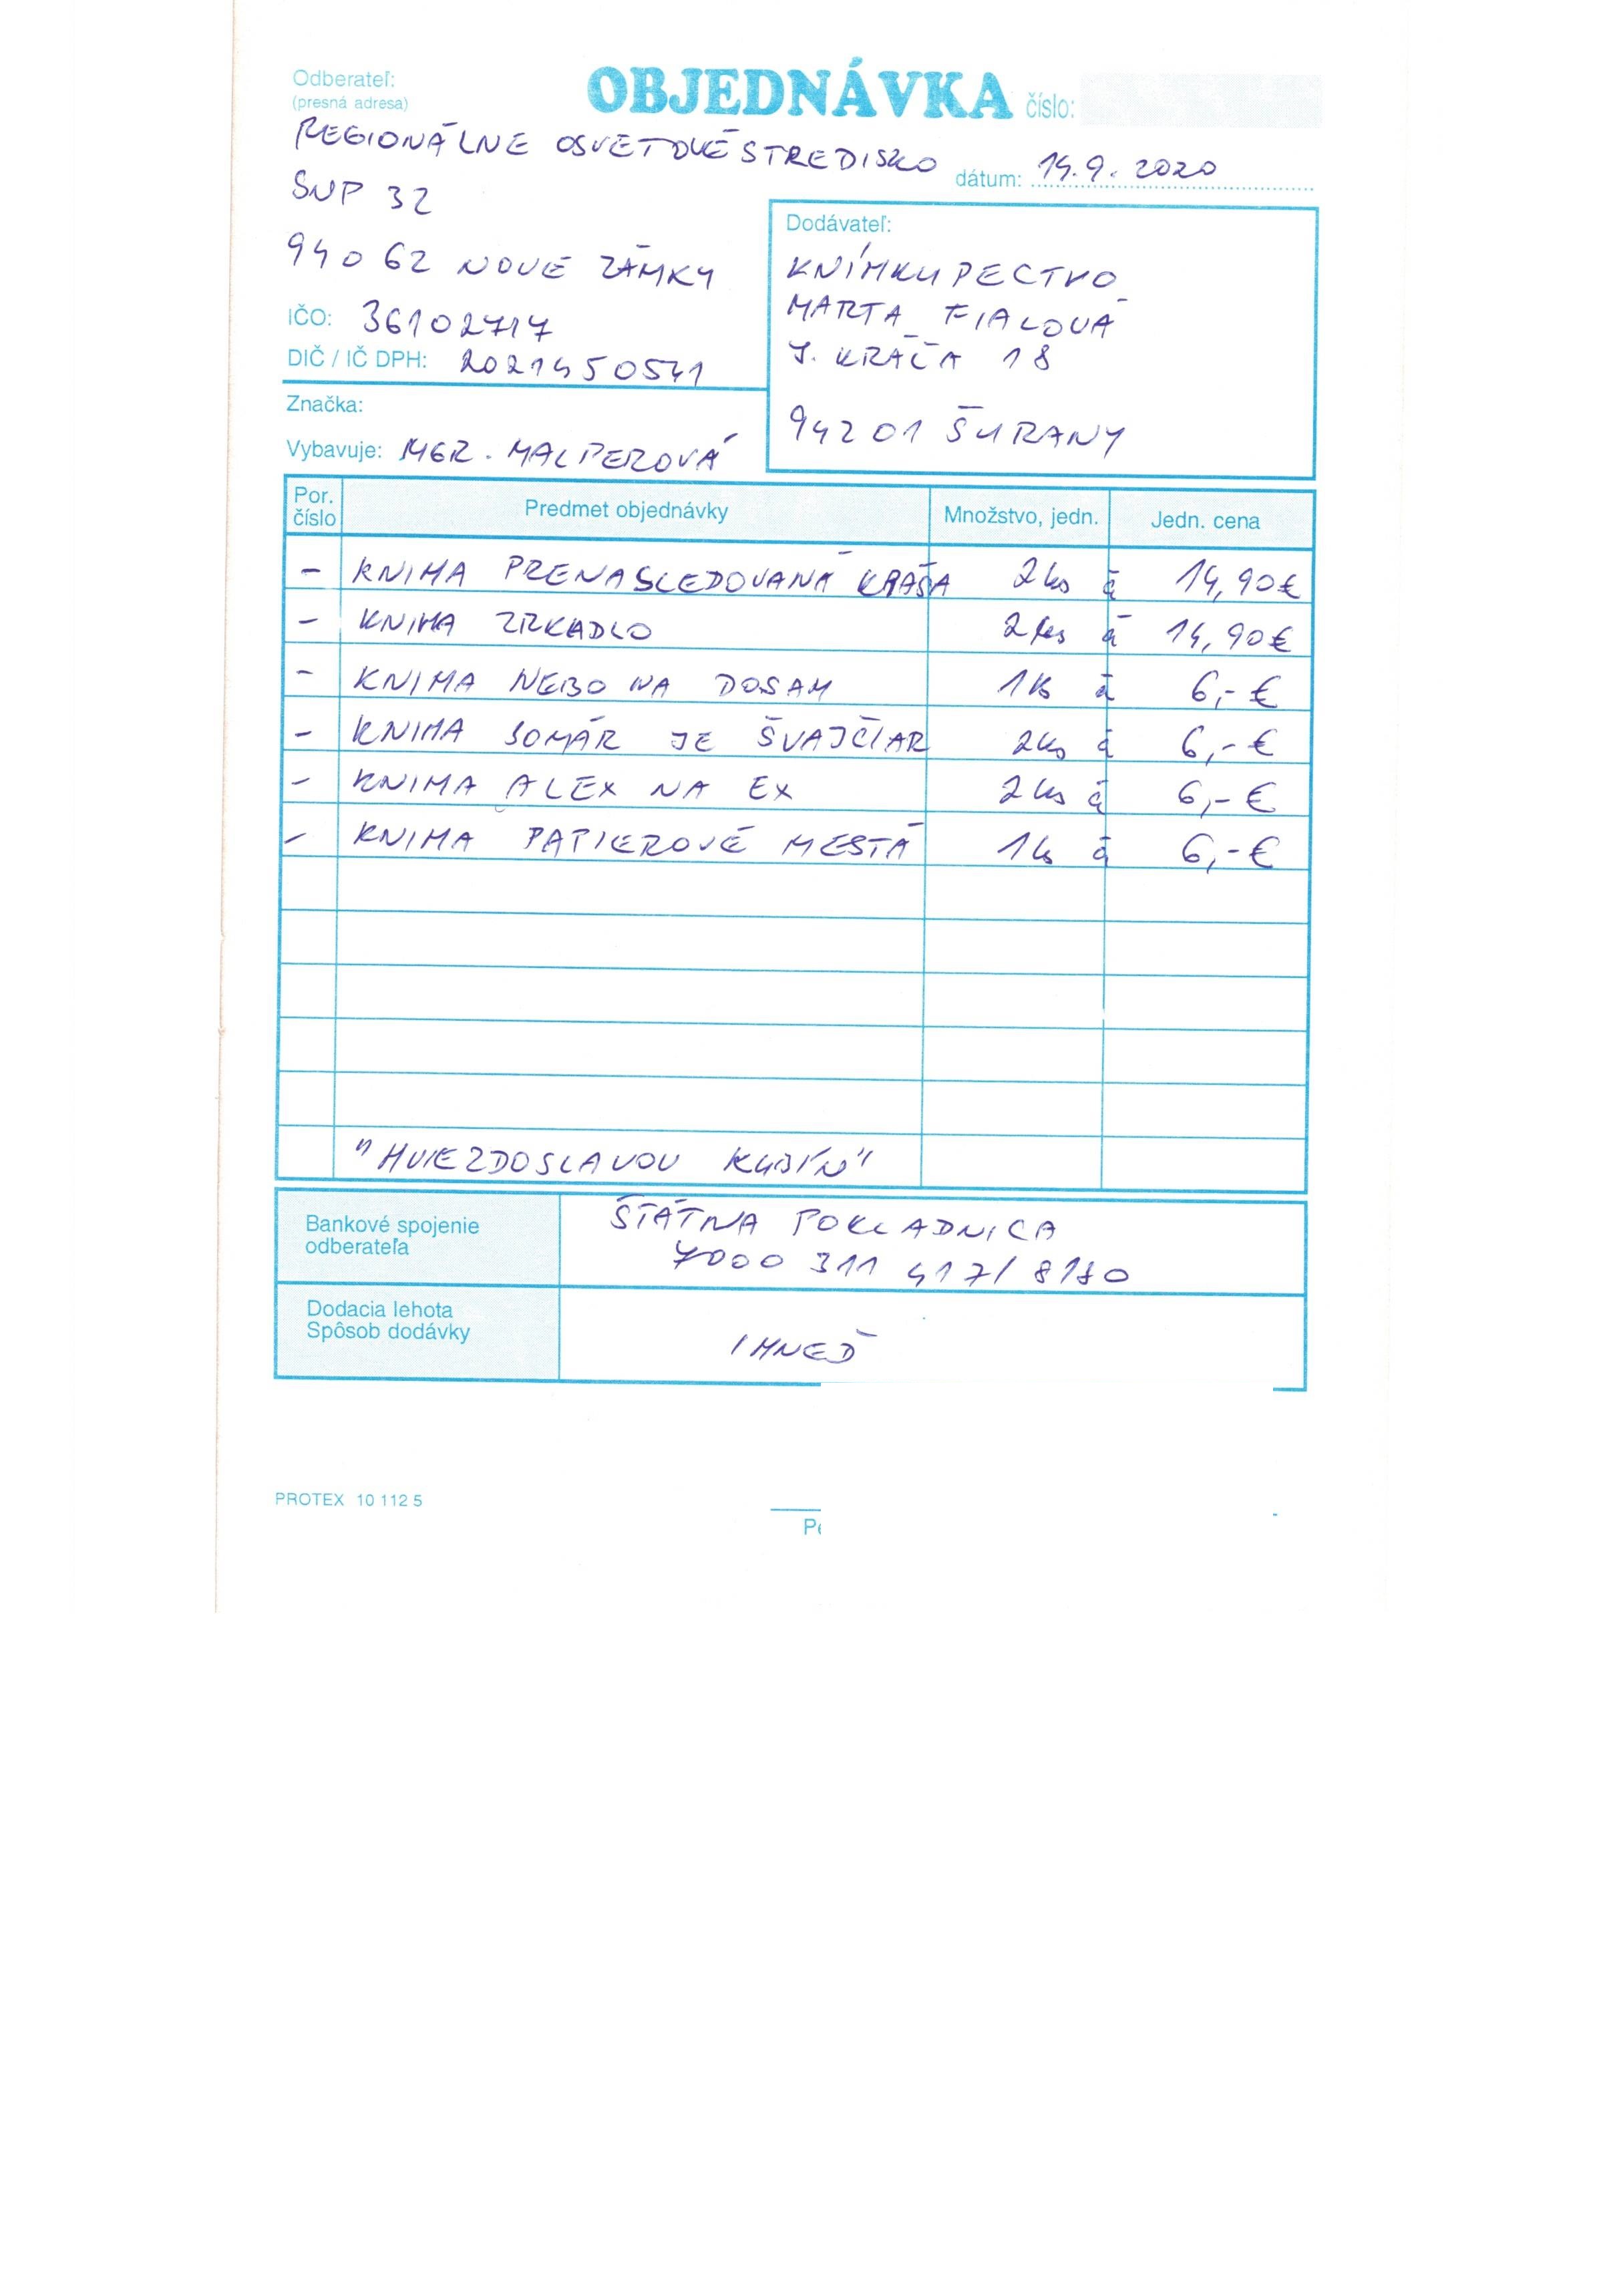 Odberateľ:
(presná adresa)
OBJEDNÁVKA číslo:
REGIONÁLNE OSVETOVÉ STREDISKO
dátum: 14.9.2020
SNP 32
940 62 NOVÉ ZÁMKY
IČO: 36102717
DIČ / IČ DPH: 2021450541
Značka:
Vybavuje: MGR. MALPEROVÁ
Dodávateľ:
KNÍHKUPECTVO
MARTA FIALOVÁ
J. KRÁČA 18
94201 ŠURANY
Por. číslo Predmet objednávky Množstvo, jedn. Jedn. cena
- KNIHA PRENASLEDOVANÁ KRAŠA 2 ks á 14,90€
- KNIHA ZRKADLO 2 ks á 14,90€
- KNIHA NEBO NA DOSAH 1 ks á 6,- €
- KNIHA SOMÁR JE ŠVAJČIAR 2 ks á 6,- €
- KNIHA ALEX NA EX 2 ks á 6,- €
- KNIHA PAPIEROVÉ MESTÁ 1 ks á 6,- €
"HVIEZDOSLAVOV KUBÍN"
Bankové spojenie
odberateľa
ŠTÁTNA POKLADNICA
7000 311 417/ 8180
Dodacia lehota
Spôsob dodávky
IHNEĎ
PROTEX 10 112 5